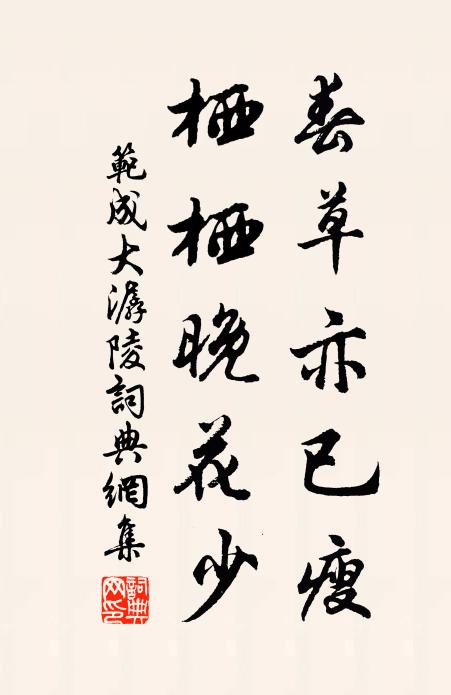 春草亦已瘦
栖栖晚花少
範成大潺陵詞典網集
詞典網印